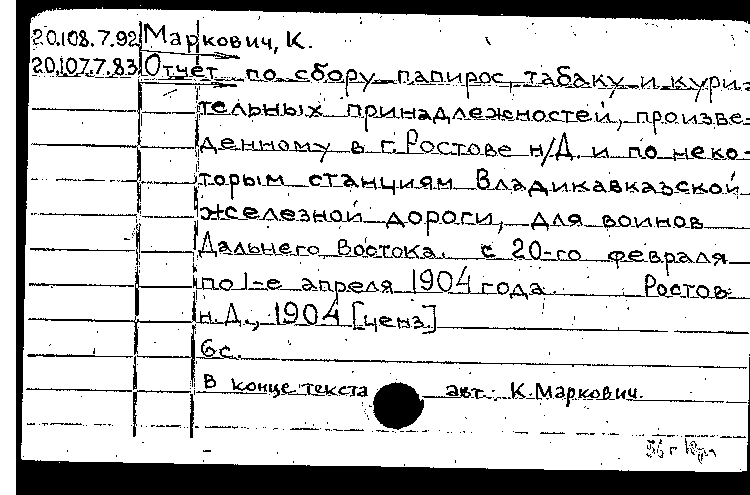 20.108.7.92 Маркович, К.
20.107.7.83 Отчет по сбору папирос, табаку и кури-
тельных принадлежностей, произве-
денному в г. Ростове н/Д. и по неко-
торым станциям Владикавказской
железной дороги, для воинов
Дальнего Востока. с 20-го февраля
по 1-е апреля 1904 года. Ростов
н.Д., 1904 [ценз.]
6с.
В конце текста авт. К. Маркович.